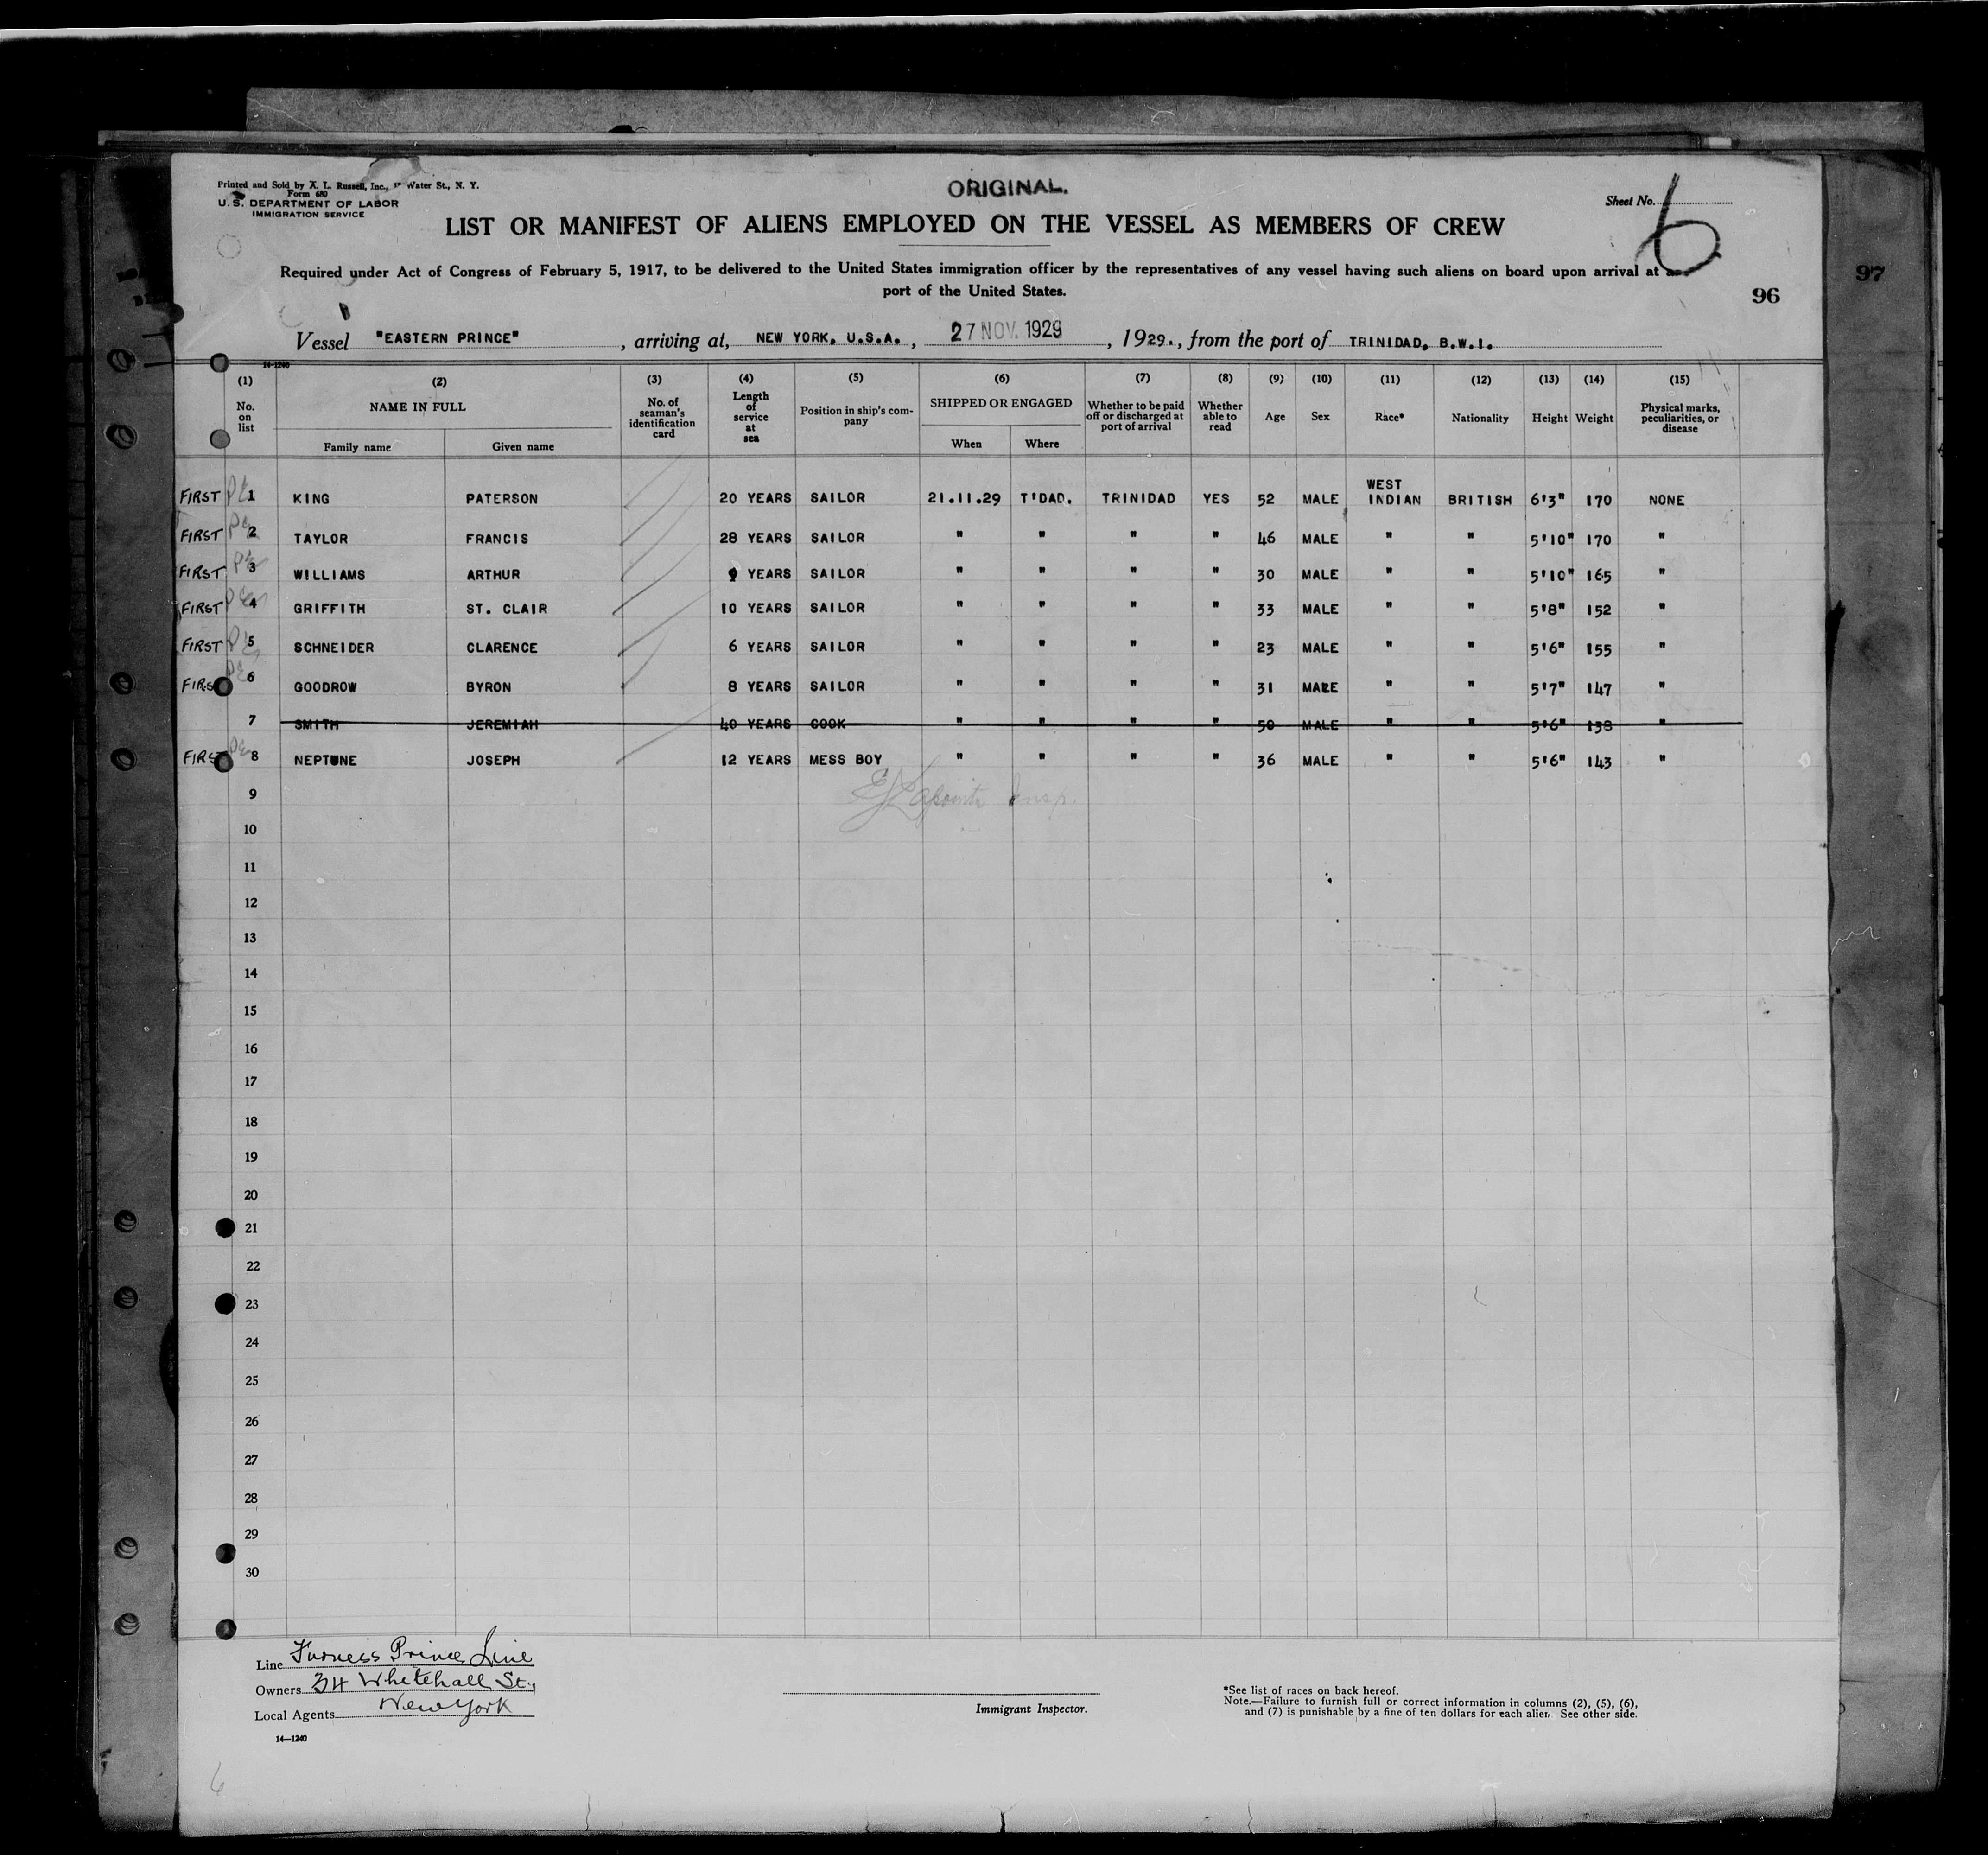 Printed and Sold by A. L. Russell, Inc., Water St., N. Y.
Form 680
U. S. DEPARTMENT OF LABOR
IMMIGRATION SERVICE
ORIGINAL.
Sheet No. 6
LIST OR MANIFEST OF ALIENS EMPLOYED ON THE VESSEL AS MEMBERS OF CREW
Required under Act of Congress of February 5, 1917, to be delivered to the United States immigration officer by the representatives of any vessel having such aliens on board upon arrival at a
port of the United States.
97
96
Vessel "EASTERN PRINCE", arriving at, NEW YORK, U.S.A., 27 NOV. 1929, 1929., from the port of TRINIDAD, B.W.I.
14-1240
(1) (2) (3) (4) (5) (6) (7) (8) (9) (10) (11) (12) (13) (14) (15)
No. on list NAME IN FULL Family name Given name No. of seaman's identification card Length of service at sea Position in ship's company SHIPPED OR ENGAGED When Where Whether to be paid off or discharged at port of arrival Whether able to read Age Sex Race* Nationality Height Weight Physical marks, peculiarities, or disease
FIRST 1 KING PATERSON 20 YEARS SAILOR 21.11.29 T'DAD. TRINIDAD YES 52 MALE WEST INDIAN BRITISH 6'3" 170 NONE
FIRST 2 TAYLOR FRANCIS 28 YEARS SAILOR " " " " 46 MALE " " 5'10" 170 "
FIRST 3 WILLIAMS ARTHUR 9 YEARS SAILOR " " " " 30 MALE " " 5'10" 165 "
FIRST 4 GRIFFITH ST. CLAIR 10 YEARS SAILOR " " " " 33 MALE " " 5'8" 152 "
FIRST 5 SCHNEIDER CLARENCE 6 YEARS SAILOR " " " " 23 MALE " " 5'6" 155 "
FIRST 6 GOODROW BYRON 8 YEARS SAILOR " " " " 31 MALE " " 5'7" 147 "
7 SMITH JEREMIAH 40 YEARS COOK " " " " 50 MALE " " 5'6" 138 "
FIRST 8 NEPTUNE JOSEPH 12 YEARS MESS BOY " " " " 36 MALE " " 5'6" 143 "
Insp.
9
10
11
12
13
14
15
16
17
18
19
20
21
22
23
24
25
26
27
28
29
30
Line Furness Prince Line
Owners 34 Whitehall St.,
Local Agents New York
14—1240
Immigrant Inspector.
*See list of races on back hereof.
Note.—Failure to furnish full or correct information in columns (2), (5), (6),
and (7) is punishable by a fine of ten dollars for each alien. See other side.
6